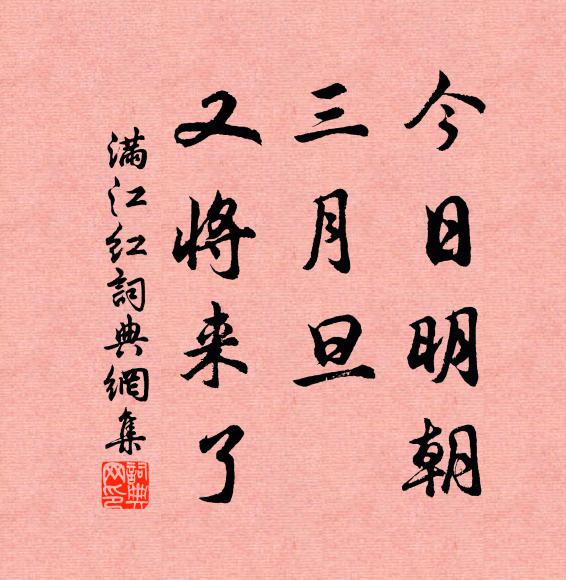 今日明朝
三月旦
又将来了
满江红詞典網集
詞典网印